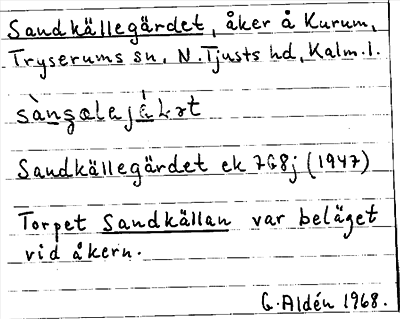 Sandkällegärdet, åker å Kurum,
Tryserums sn, N. Tjusts hd, Kalm. l.
Sandkällegärdet ek 7G8j (1947)
Torpet Sandkällan var beläget
vid åkern.
G. Aldén 1968.